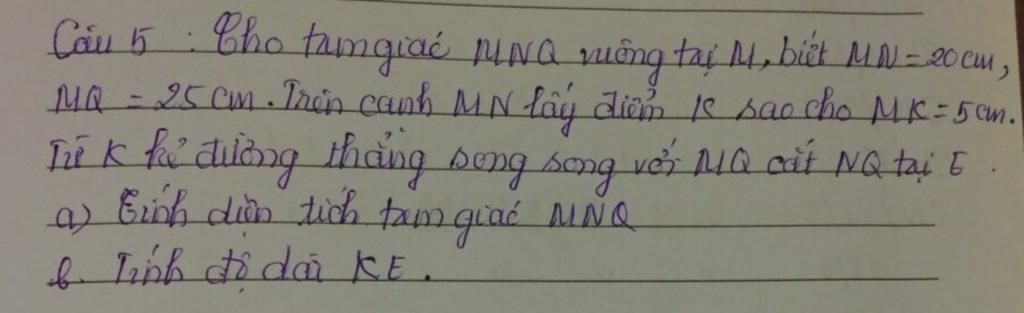 Câu 5 : Cho tam giác MNQ vuông tại M, biết MN = 20 cm,
MQ = 25 cm. Trên cạnh MN lấy điểm K sao cho MK = 5 cm.
Từ K kẻ đường thẳng song song với MQ cắt NQ tại E .
a) Tính diện tích tam giác MNQ
b. Tính độ dài KE .